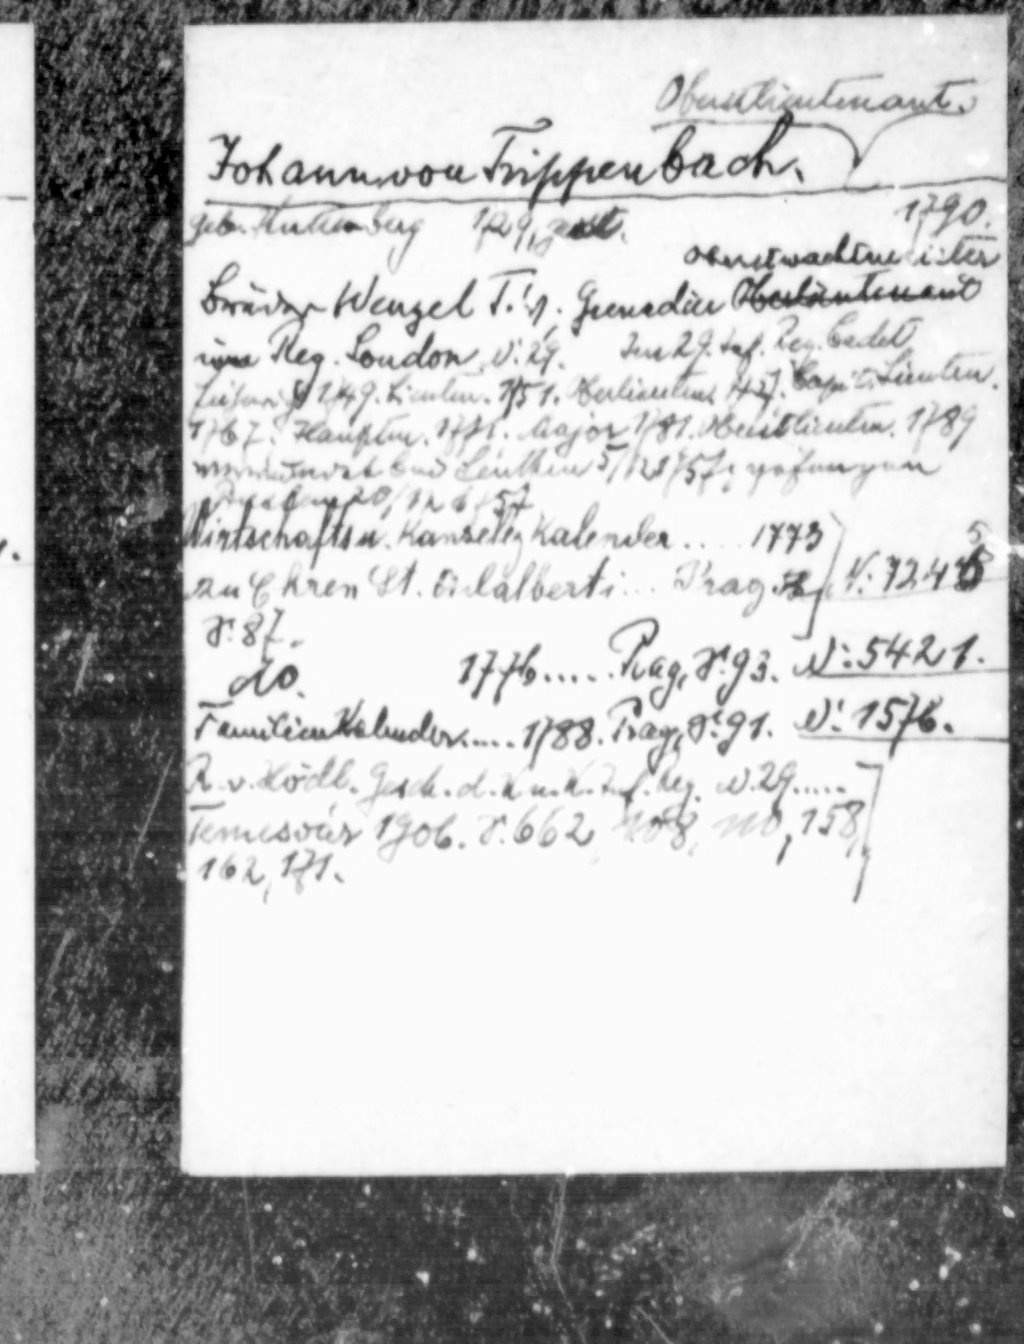 Oberstlieutenant.
Johann von Trippenbach.
geb. Kuttenberg 1729, gest. 1790.
Oberstwachtmeister
Bruder Wenzel T. Grenadier Oberlieutenant
im Reg. Loudon, N. 29. Im 29. Inf. Reg. Cadet
1749. Lieuten. 1751. Oberlieuten. Capit. Lieuten.
1767. Hauptm. 1771. Major 1781. Oberstlieuten. 1789
verwundet bei Leuthen 5/12 1757, gefangen
20/12 1757
Wirtschafts u. Kanzelley Kalender .... 1773
zu Ehren St. Adalberti ... Prag N. 7245
S. 87.
do. 1776 ..... Prag, S. 93. N. 5421.
Familien Kalender .... 1788. Prag, S. 91. N. 1576.
R. v. Hödl. Gesch. d. K. u. K. Inf. Reg. N. 29 .....
Temesvár 1906. S. 662, 108, 110, 158,
162, 171.